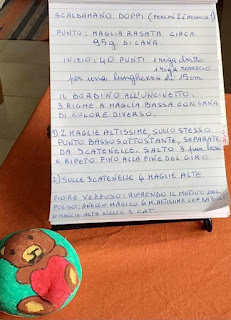 SCALDAMANO DOPPI (PERCHÈ 2 È MEGLIO!)
PUNTO: MAGLIA RASATA CIRCA
95g. DI LANA
INIZIO: 40 PUNTI 1 riga dritto
1 riga rovescio
per una lunghezza di 15cm
IL BORDINO ALL'UNCINETTO:
3 RIGHE A MAGLIA BASSA CON LANA
DI COLORE DIVERSO.
1) 2 MAGLIE ALTISSIME, SULLO STESSO
PUNTO BASSO SOTTOSTANTE, SEPARATE
DA 3 CATENELLE. SALTO 3 pun. bassi
E RIPETO FINO ALLA FINE DEL GIRO
2) SULLE 3 CATENELLE 6 MAGLIE ALTE.
FIORE VEZZOSO: RIPRENDO IL MOTIVO DEL
POLSO: ANELLO MAGICO 6 M. ALTISSIME
6 MAGLIE ALTE 3 CAT.